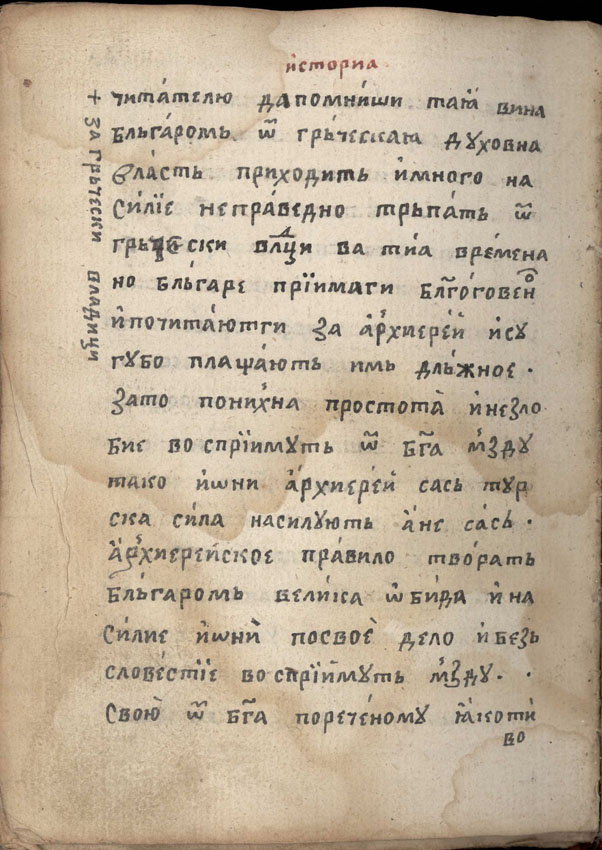 исторіа
читателю да помниши такꙗ вина
бльгаромь ѿ грьческаꙗ духовна
власть приходить и много на
силїе неправедно трьпать ѿ
грьчески влⷣци ва тиа времена
но бльгаре прїимаги бл҃гоговенⷪ
и почитаютги за архиерей и су
губо плащають имь длъжное ·
зато по них̾на простота и незло
бие воспрїимуть ѿ бг҃а м̾зду
тако и ѡни архиерей сась тур
ска сила насилують а не сась ·
архиерейское правило творать
бльгаромь велика ѡбида и на
силие и ѡни по свое дело и безь
словестїе воспрїимуть м̾зду · ·
свою ѿ бг҃а пореченому ꙗко ти
во
+ за грьчески владици